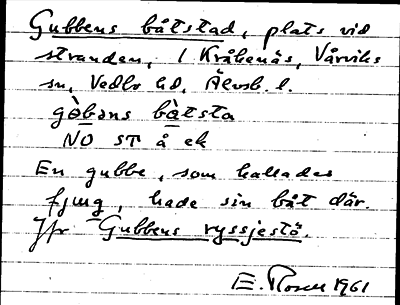 Gubbens båtstad, plats vid
stranden, l Kråkenäs, Vårviks
sn, Vedbo hd, Älvsb. l.
gòbəns bàtsta
NO ST å ek
En gubbe, som kallades
fjung, hade sin båt där.
Jfr Gubbens ryssjestö.
E. Rosell 1961